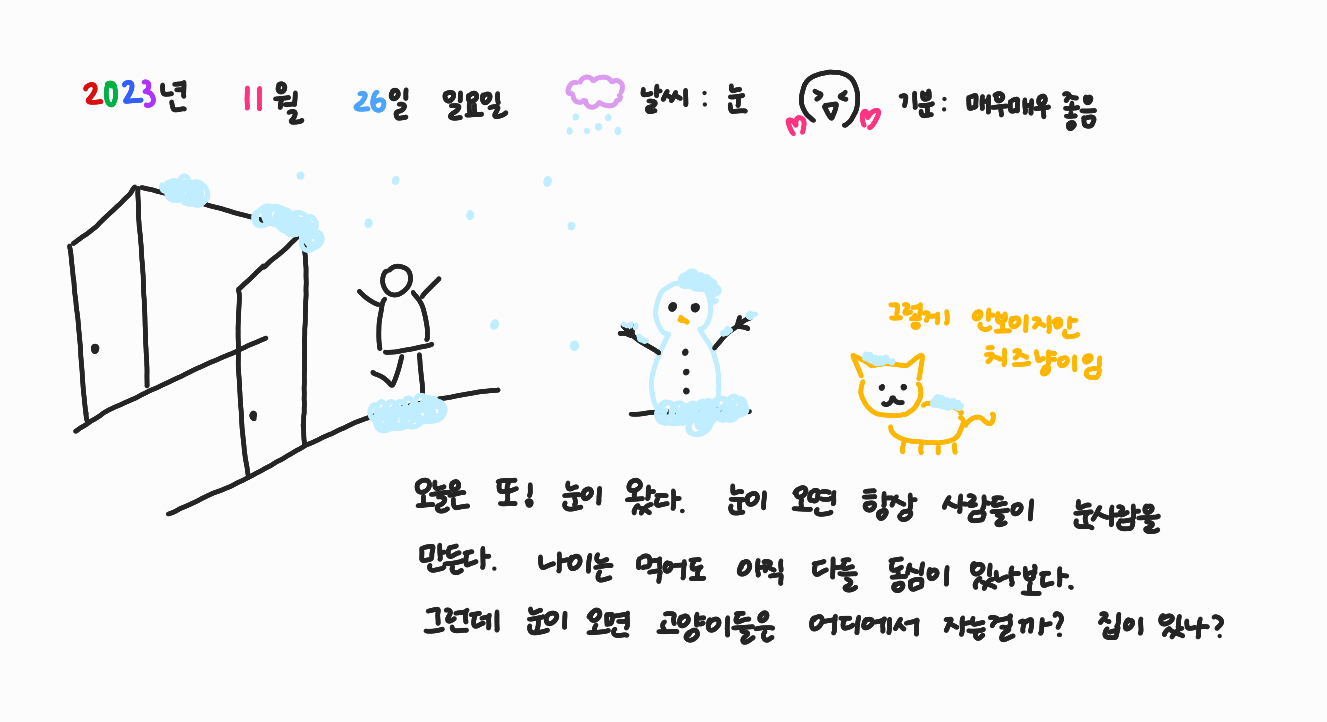 2023년 11월 26일 일요일 날씨 : 눈 기분 : 매우매우 좋음
그렇게 안보이지만
치즈냥이임
오늘은 또! 눈이 왔다. 눈이 오면 항상 사람들이 눈사람을
만든다. 나이는 먹어도 아직 다들 동심이 있나보다.
그런데 눈이 오면 고양이들은 어디에서 자는걸까? 집이 있나?